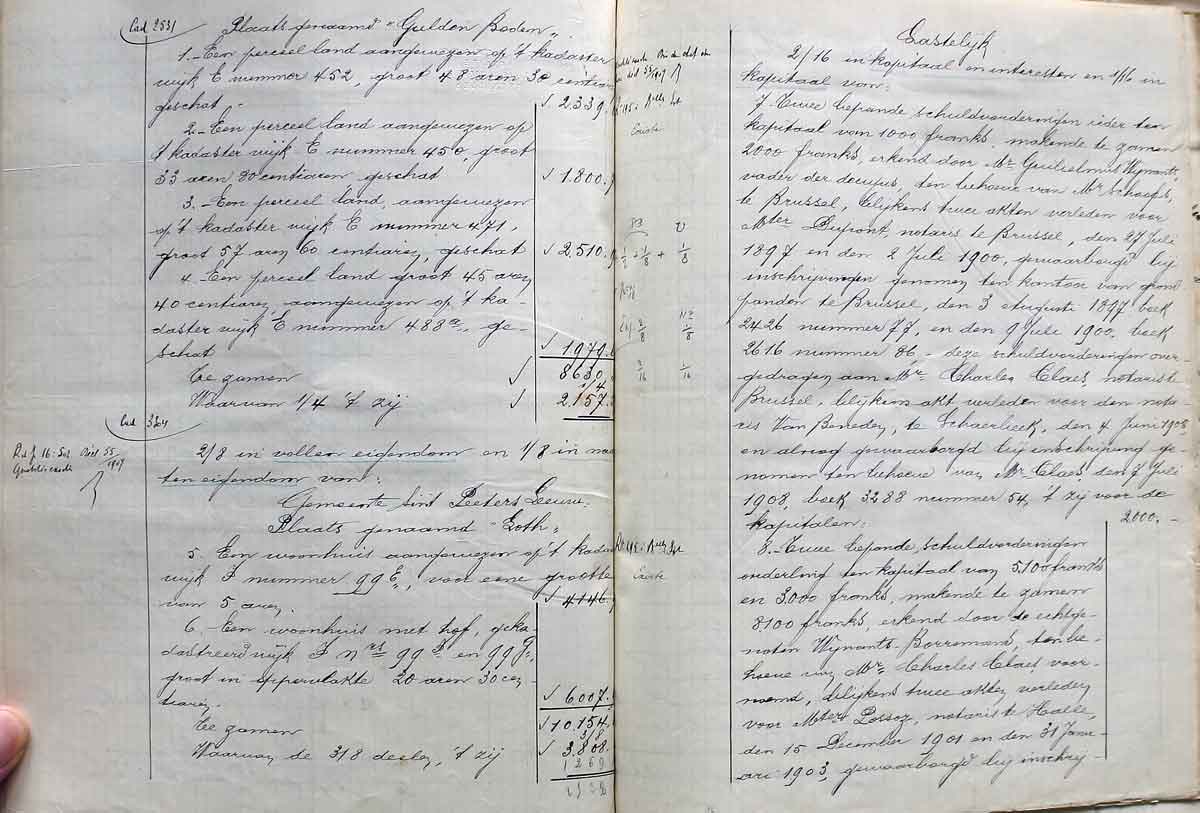 Cad 2531
Plaats genaamd "Gulden Boden"
1.- Een perceel land aangewezen op 't kadaster
wijk E nummer 452, groot 48 aren 30 centiaren
geschat.
√ 2.339.
2.- Een perceel land aangewezen op
't kadaster wijk E nummer 450, groot
33 aren 80 centiaren geschat
√ 1.800.
3.- Een perceel land, aangewezen
op 't kadaster wijk E nummer 471,
groot 57 aren 60 centiaren, geschat
√ 2.510.
4.- Een perceel land groot 45 aren
40 centiaren, aangewezen op 't ka-
daster wijk E nummer 488a, ge-
schat
√ 1979.
Te zamen √ 8630.
1/4
Waarvan 1/4 't zij √ 2.157.
Cad 324
2/8 in vollen eigendom en 1/8 in naak-
ten eigendom van:
Gemeente Sint Peeters Leeuw.
Plaats genaamd "Loth"
5. Een woonhuis aangewezen op 't kadas
wijk I nummer 99E, voor eene grootte
van 5 aren.
√ 4146.
6. Een woonhuis met hof, geka-
dastreerd wijk I nrs 99 en 99
groot in oppervlakte 20 aren 30 cen-
tiaren
√ 6007.
Te zamen √ 10.154.
3/8
Waarvan de 3/8 deelen, 't zij √ 3.808.
1269
Lastelijk
2/16 in kapitaal en interesten en 1/16 in
kapitaal van:
7. Twee bepande schuldvorderingen ieder ten
kapitaal van 1000 franks, makende te zamen
2000 franks, erkend door Mr Guilielmus Wynants,
vader der decujus, ten behoeve van Mr Schoeps,
te Brussel, blijkens twee akten verleden voor
Mter Dupont, notaris te Brussel, den 27 Juli
1897 en den 2 Juli 1900, gewaarborgd bij
inschrijvingen genomen ten kantoor van grond
panden te Brussel, den 3 Augusti 1897 boek
2426 nummer 77, en den 9 Juli 1900, boek
2616 nummer 86 - deze schuldvorderingen over-
gedragen aan Mr Charles Claes, notaris te
Brussel, blijkens akt verleden voor den nota-
ris Van Beneden, te Schaerbeek, den 4 Juni 1908,
en alnog gewaarborgd bij inschrijving ge-
nomen ten behoeve van Mr Claes, den 7 Juli
1908, boek 3288 nummer 54, 't zij voor de
kapitalen:
2000.-
8.- Twee bepande schuldvorderingen
onderling ten kapitaal van 5,100 franks
en 3.000 franks, makende te zamen
8100 franks, erkend door de echtge-
noten Wynants-Borremans, ten be-
hoeve van Mr Charles Claes, voor-
noemd, blijkens twee akten verleden
voor Mter Possoz, notaris te Halle,
den 15 December 1901 en den 31 Janu-
ari 1903, gewaarborgd bij inschrij-